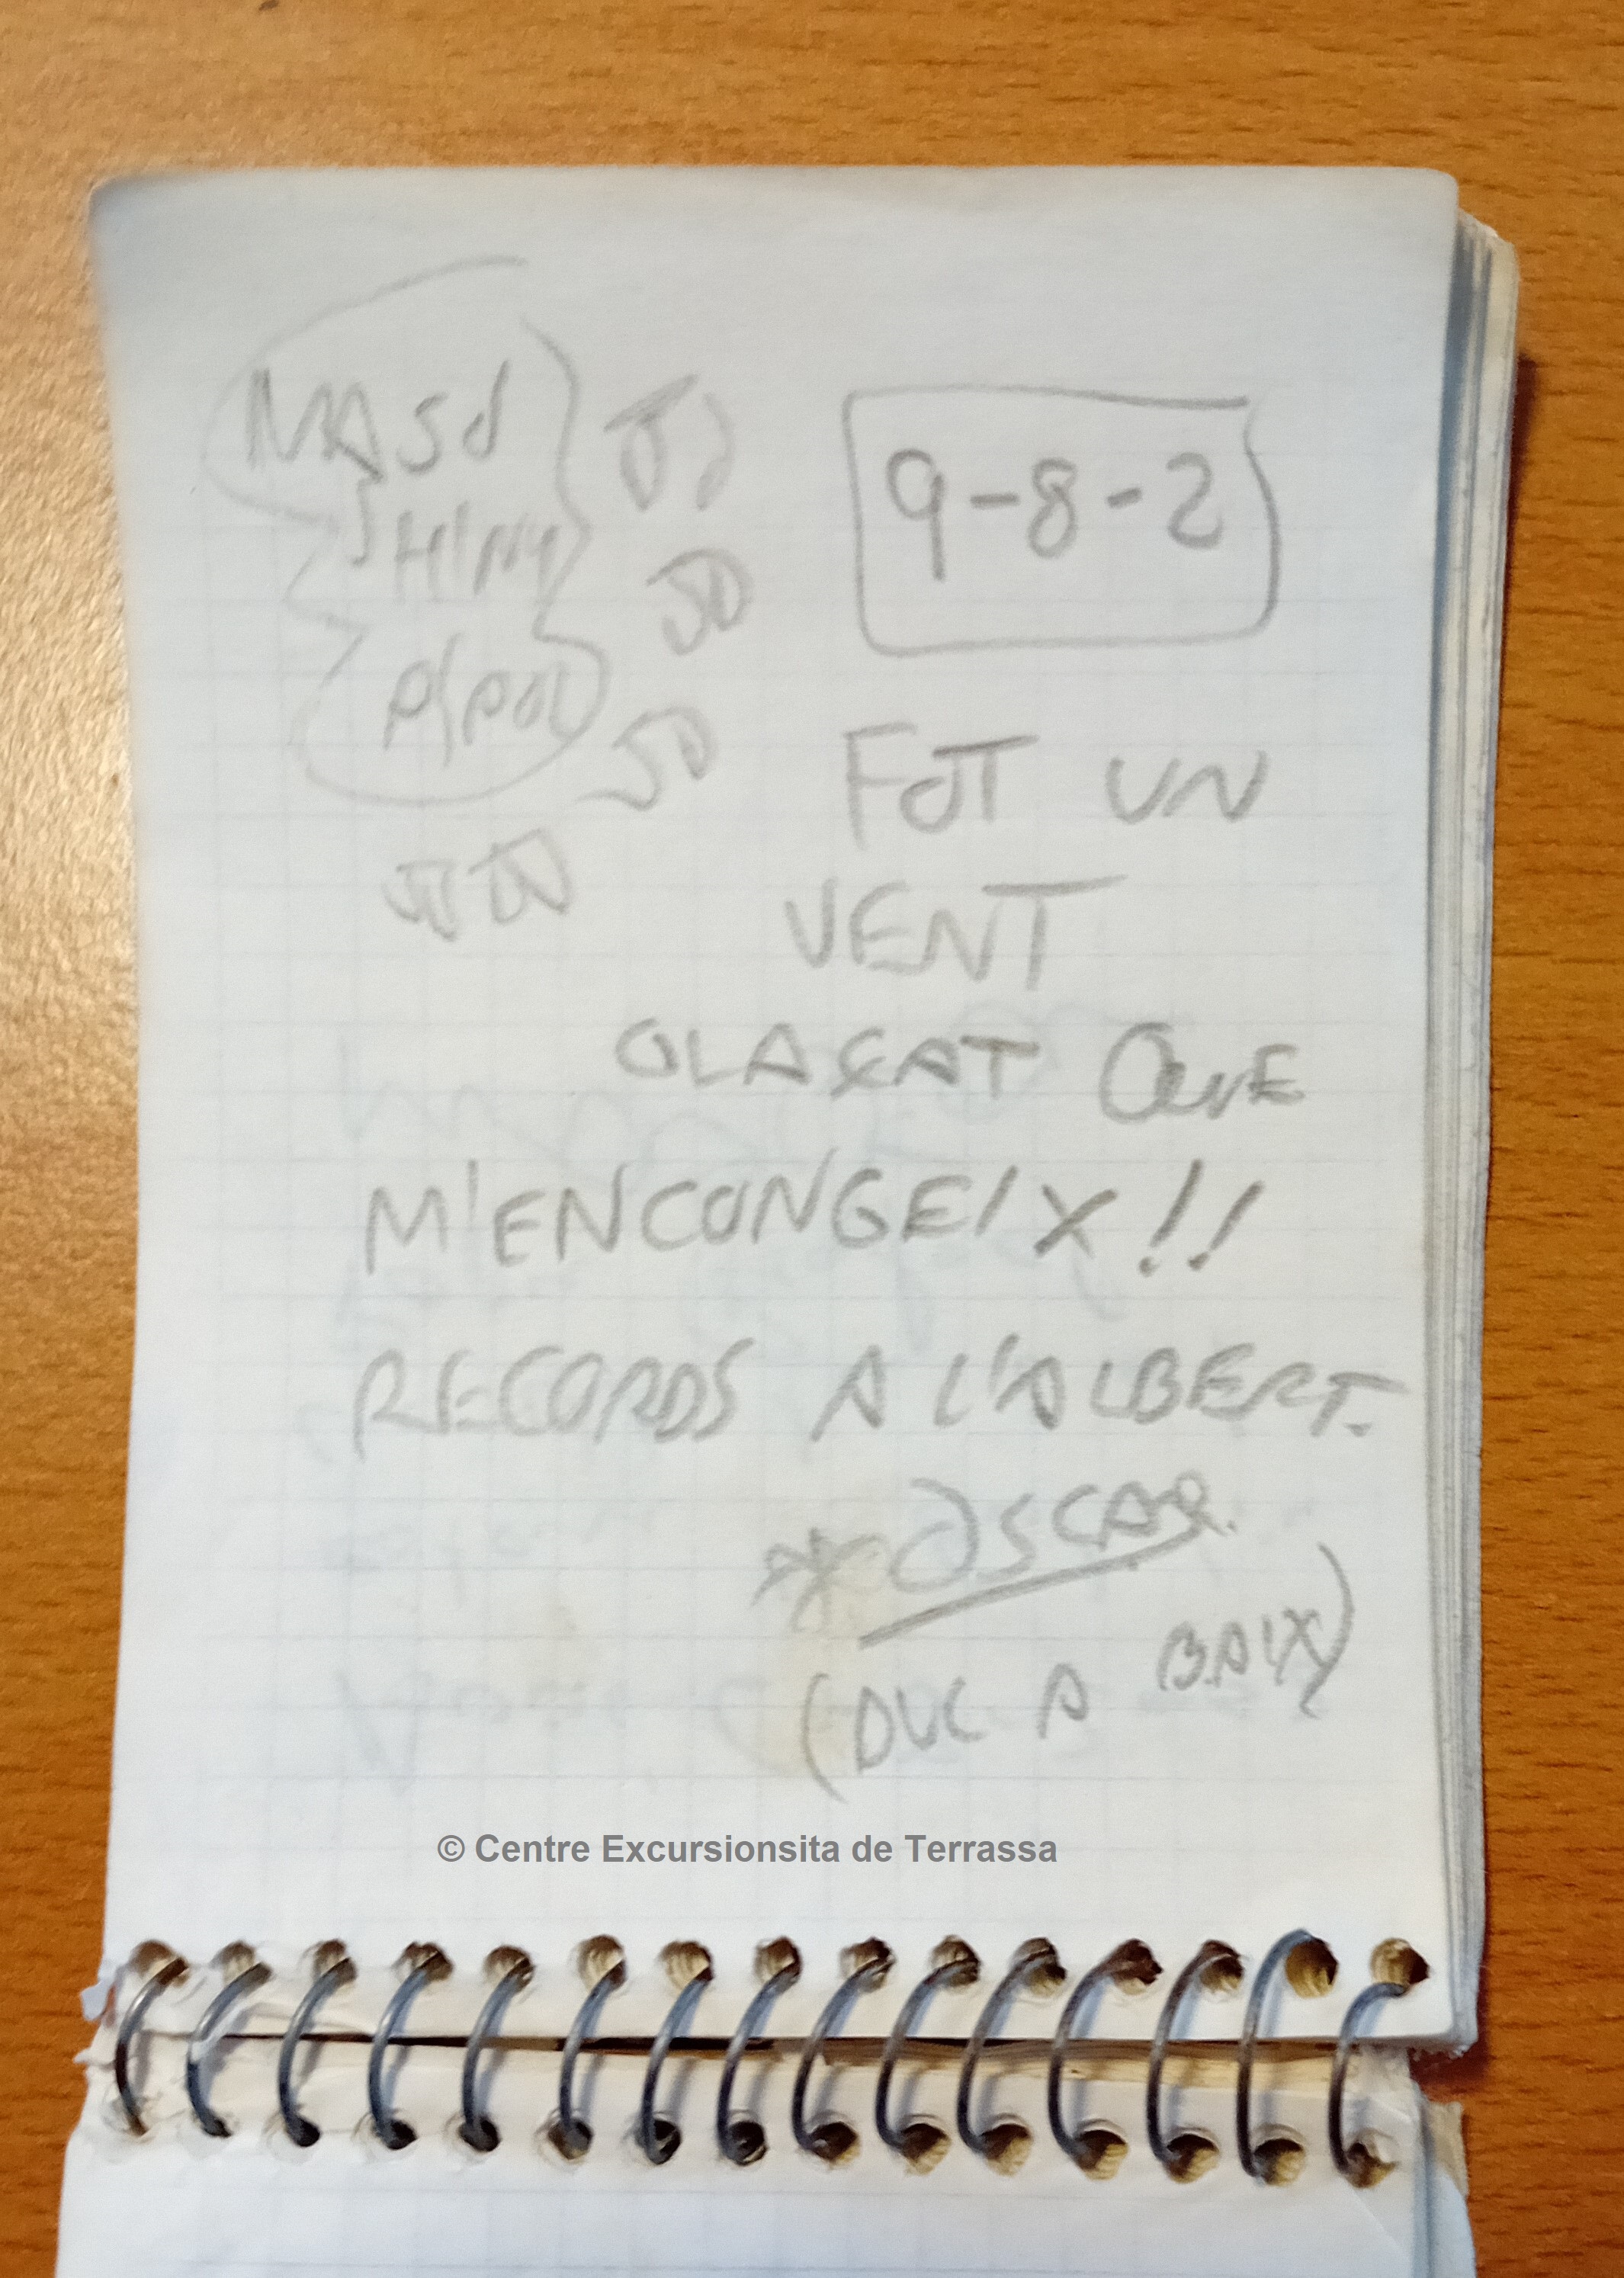 9-8-2
FOT UN
VENT
GLAÇAT QUE
M'ENCONGEIX!!
RECORDS A L'ALBERT.
OSCAR.
(DUC A BAIX)
© Centre Excursionsita de Terrassa